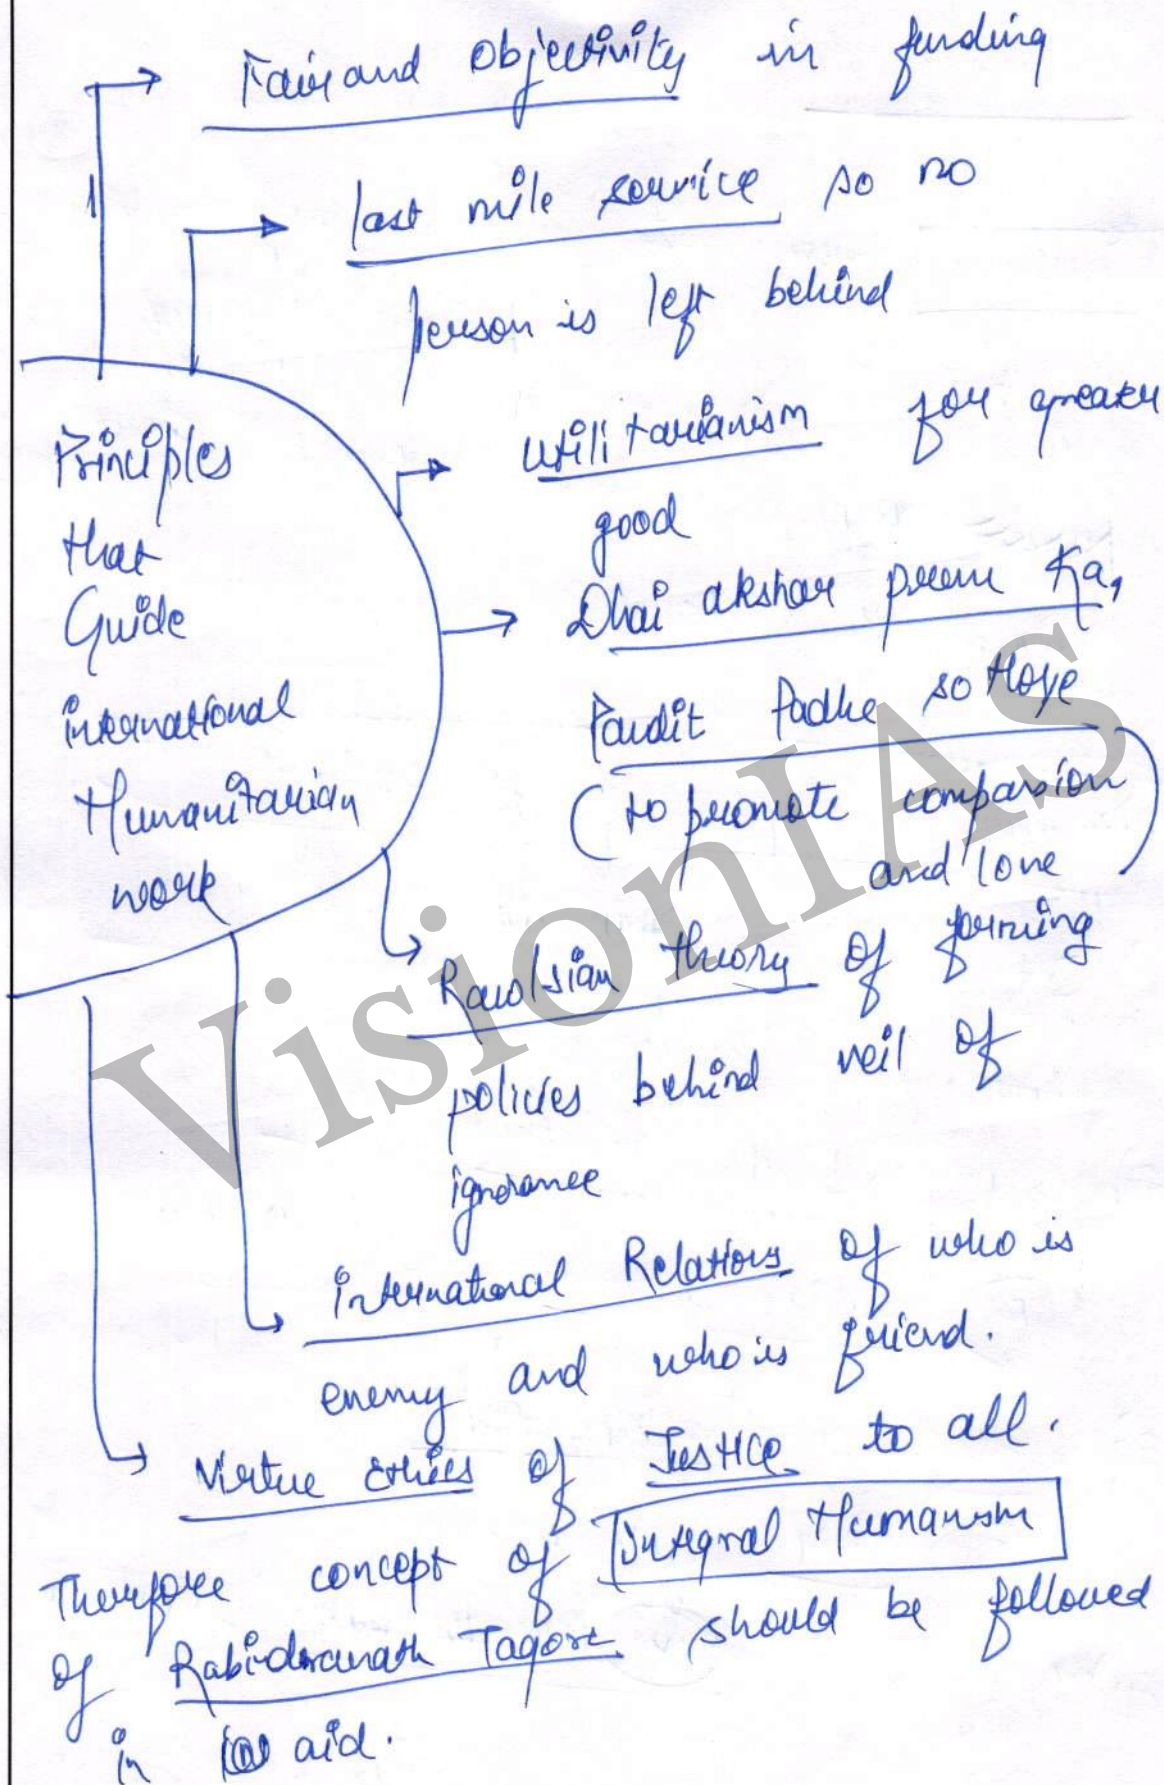 Fair and Objectivity in funding
last mile service so no
person is left behind
Principles
that
Guide
international
Humanitarian
work
Utilitarianism for greater
good
Dhai akshar prem Ka,
Pandit Padhe so Hoye
(to promote compassion
and love)
Rawlsian theory of forming
policies behind veil of
ignorance
international Relations of who is
enemy and who is friend.
Virtue Ethics of Justice to all.
Therefore concept of Integral Humanism
of Rabindranath Tagore should be followed
in aid.
VisionIAS